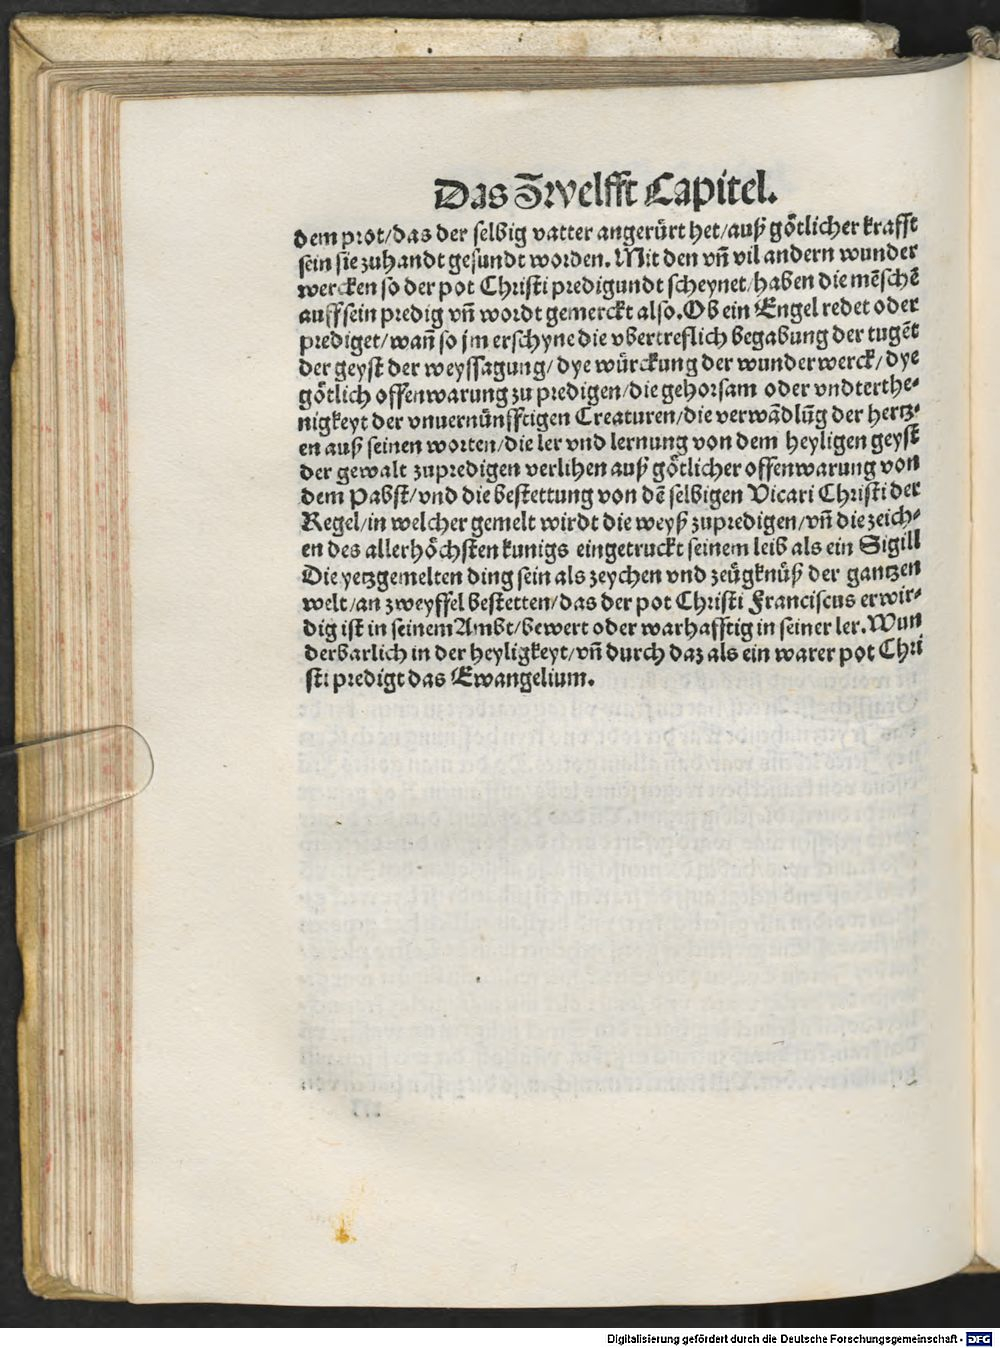 Das Zwelfft Capitel.
dem prot/das der selbig vatter angerürt het/auß götlicher krafft
sein sie zuhandt gesundt worden. Mit den vñ vil andern wunder
wercken so der pot Christi predigundt scheynet/haben die mēschē
auff sein predig vñ wordt gemerckt also. Ob ein Engel redet oder
prediget/wañ so jm erschyne die vbertreflich begabung der tugēt
der geyst der weyssagung/dye würckung der wunderwerck/dye
götlich offenwarung zu predigen/die gehorsam oder vndterthe⸗
nigkeyt der vnuernünfftigen Creaturen/die verwādlūg der hertz⸗
en auß seinen worten/die ler vnd lernung von dem heyligen geyst
der gewalt zupredigen verlihen auß götlicher offenwarung von
dem Pabst/vnd die bestettung von dē selbigen Vicari Christi der
Regel/in welcher gemelt wirdt die weyß zupredigen/vñ die zeich⸗
en des allerhöchsten kunigs eingetruckt seinem leib als ein Sigill
Die yetzgemelten ding sein als zeychen vnd zeügknüß der gantzen
welt/an zweyffel bestetten/das der pot Christi Franciscus erwir⸗
dig ist in seinem Ambt/bewert oder warhafftig in seiner ler. Wun
derbarlich in der heyligkeyt/vñ durch daz als ein warer pot Chri
sti predigt das Ewangelium.
Digitalisierung gefördert durch die Deutsche Forschungsgemeinschaft - DFG